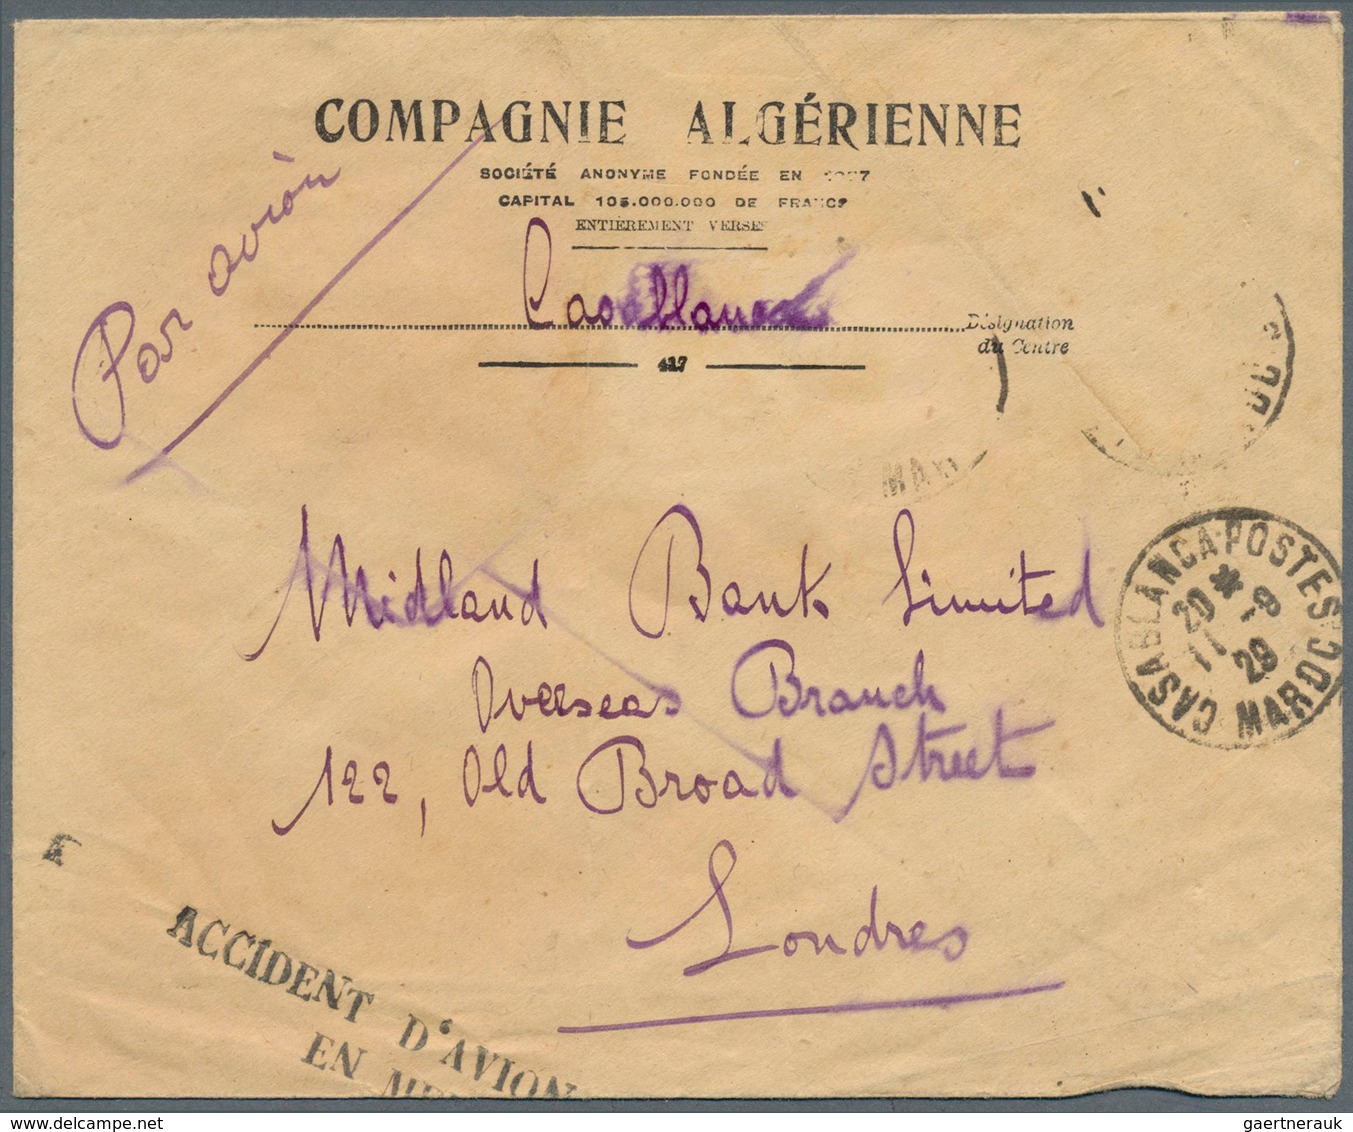 COMPAGNIE ALGÉRIENNE
SOCIÉTÉ ANONYME FONDÉE EN
CAPITAL 105.000.000 DE FRANCS
ENTIÈREMENT VERSÉS
Par avion
Casablanca
Désignation
du Centre
417
Midland Bank Limited
Overseas Branch
122, Old Broad Street
Londres
CASABLANCA·POSTES
20 * 9
11 29
MAROC
ACCIDENT D'AVION
EN
gaertnerauk